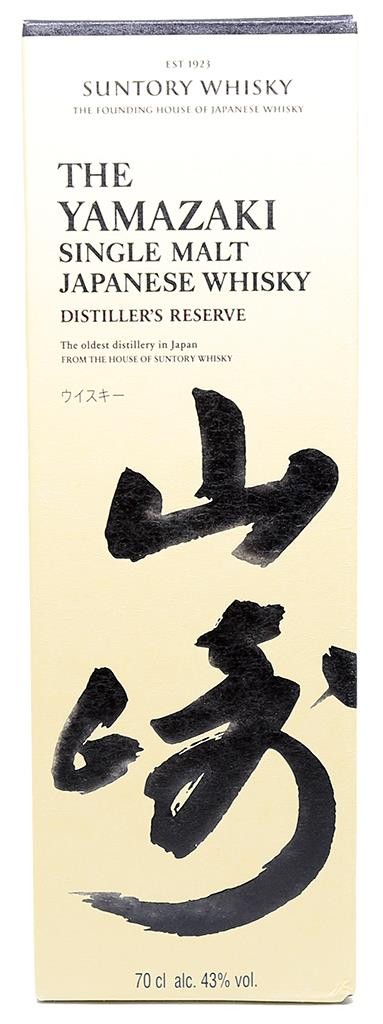 EST 1923
SUNTORY WHISKY
THE FOUNDING HOUSE OF JAPANESE WHISKY
THE
YAMAZAKI
SINGLE MALT
JAPANESE WHISKY
DISTILLER'S RESERVE
The oldest distillery in Japan
FROM THE HOUSE OF SUNTORY WHISKY
ウイスキー
山
崎
70 cl alc. 43% vol.